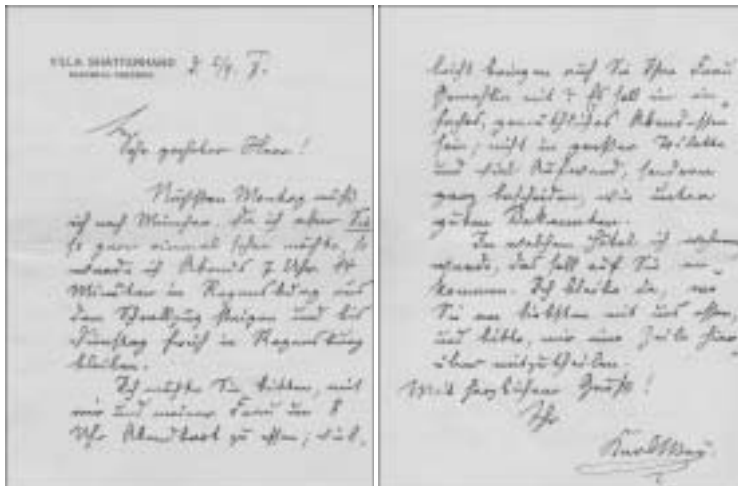 VILLA SHATTERHAND
RADEBEUL-DRESDEN
Sehr geehrter Herr!
Nächsten Montag muß
ich nach München. Da ich aber Sie
so gern einmal sehen möchte, so
werde ich Abends 7 Uhr 44
Minuten in Regensburg aus
dem Schnellzug steigen und bis
Dienstag früh in Regensburg
bleiben.
Ich möchte Sie bitten, mit
mir und meiner Frau um 8
Uhr Abendbrot zu essen; viel-
leicht bringen auch Sie Ihre Frau
Gemahlin mit? Es soll ein ein-
faches, gemüthliches Abendessen
sein, nicht in großer Toilette
und viel Aufwand, sondern
ganz bescheiden, wie unter
guten Bekannten.
In welchem Hôtel ich wohnen
werde, das soll auf Sie an-
kommen. Ich bleibe da, wo
Sie am liebsten mit uns essen,
und bitte, mir eine Zeile hier-
über mitzutheilen.
Mit herzlichem Gruße!
Ihr
Karl May.